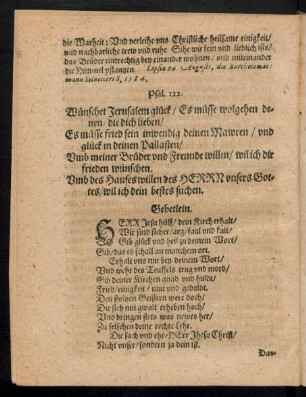 die Warheit: Und verleihe uns Christliche heilsame einigkeit/
und nachbarliche trew und ruhe Sihe wie fein und lieblich ists/
das Brüder eintrechtig bey einander wohnen/ und miteinander
die Himmel pflantzen. Lipsiæ 24 Augusti, die Bartholomæi
1584.
Psal. 122.
Wünschet Jerusalem glück/ Es müsse wolgehen de-
nen die dich lieben/
Es müsse fried sein inwendig deinen Mawren/ und
glück in deinen Pallasten/
Umb meiner Brüder und Freunde willen/ wil ich dir
frieden wünschen.
Umb des Hauses willen des HERRN unsers Got-
tes/ wil ich dein bestes suchen.
Gebetlein.
HERR Jesu hilff/ dein Kirch erhalt/
Wir sind sicher/ arg/ faul und kalt/
Gib glück und heil zu deinem Wort/
Gib/ das es schall an manchem ort.
Erhalt uns nur bey deinem Wort/
Und wehr des Teuffels trug und mord/
Gib deiner Kirchen gnad und huld/
Fried/ einigkeit/ mut und gedult.
Den stoltzen Geistern were doch/
Die sich mit gwalt erheben hoch/
Und bringen stets was newes her/
Zu felschen deine rechte Lehr.
Die sach und ehr/ HErr Jhesu Christ/
Nicht unser/ sondern ja dein ist.
Dar-